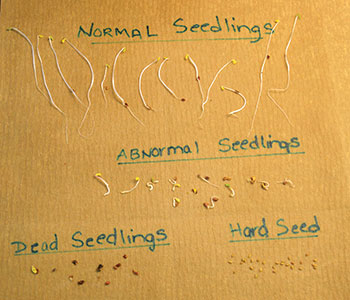 NORMAL Seedlings
ABNormal Seedlings
Dead Seedlings
Hard Seed